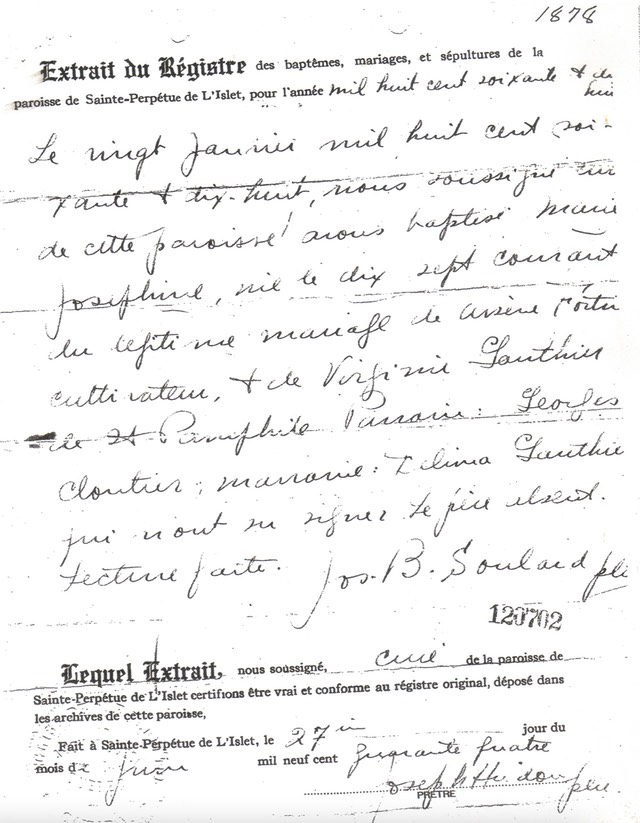 1878
Extrait du Régistre des baptêmes, mariages, et sépultures de la
paroisse de Sainte-Perpétue de L'Islet, pour l'année mil huit cent soixante & dix
huit
Le vingt Janvier mil huit cent soi-
xante & dix-huit, nous soussigné curé
de cette paroisse avons baptisé Marie
Joséphine, née le dix sept courant
du légitime mariage de Arsène
cultivateur, & de Virginie Gauthier
de St Pamphile Parrain: Georges
Cloutier; marraine: Gauthier
qui n'ont su signer Le père absent.
Lecture faite. Jos. B. Soulard ptre
120702
Lequel Extrait, nous soussigné, curé de la paroisse de
Sainte-Perpétue de L'Islet certifions être vrai et conforme au régistre original, déposé dans
les archives de cette paroisse,
Fait à Sainte-Perpétue de L'Islet, le 27 ième jour du
mois de Juin mil neuf cent quatre
Joseph ptre.
PRÊTRE